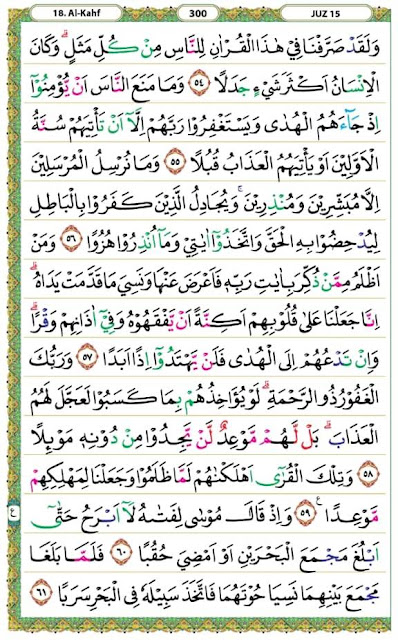 18. Al-Kahf 300 JUZ 15
وَلَقَدْ صَرَّفْنَا فِيْ هٰذَا الْقُرْاٰنِ لِلنَّاسِ مِنْ كُلِّ مَثَلٍۗ وَكَانَ
الْاِنْسَانُ اَكْثَرَ شَيْءٍ جَدَلًا ۝٥٤ وَمَا مَنَعَ النَّاسَ اَنْ يُّؤْمِنُوْٓا
اِذْ جَاۤءَهُمُ الْهُدٰى وَيَسْتَغْفِرُوْا رَبَّهُمْ اِلَّآ اَنْ تَأْتِيَهُمْ سُنَّةُ
الْاَوَّلِيْنَ اَوْ يَأْتِيَهُمُ الْعَذَابُ قُبُلًا ۝٥٥ وَمَا نُرْسِلُ الْمُرْسَلِيْنَ
اِلَّا مُبَشِّرِيْنَ وَمُنْذِرِيْنَۚ وَيُجَادِلُ الَّذِيْنَ كَفَرُوْا بِالْبَاطِلِ
لِيُدْحِضُوْا بِهِ الْحَقَّ وَاتَّخَذُوْٓا اٰيٰتِيْ وَمَآ اُنْذِرُوْا هُزُوًا ۝٥٦ وَمَنْ
اَظْلَمُ مِمَّنْ ذُكِّرَ بِاٰيٰتِ رَبِّهٖ فَاَعْرَضَ عَنْهَا وَنَسِيَ مَا قَدَّمَتْ يَدَاهُۗ
اِنَّا جَعَلْنَا عَلٰى قُلُوْبِهِمْ اَكِنَّةً اَنْ يَّفْقَهُوْهُ وَفِيْٓ اٰذَانِهِمْ وَقْرًاۗ
وَاِنْ تَدْعُهُمْ اِلَى الْهُدٰى فَلَنْ يَّهْتَدُوْٓا اِذًا اَبَدًا ۝٥٧ وَرَبُّكَ
الْغَفُوْرُ ذُو الرَّحْمَةِۗ لَوْ يُؤَاخِذُهُمْ بِمَا كَسَبُوْا لَعَجَّلَ لَهُمُ
الْعَذَابَۗ بَلْ لَّهُمْ مَّوْعِدٌ لَّنْ يَّجِدُوْا مِنْ دُوْنِهٖ مَوْىِٕلًا
۝٥٨ وَتِلْكَ الْقُرٰٓى اَهْلَكْنٰهُمْ لَمَّا ظَلَمُوْا وَجَعَلْنَا لِمَهْلِكِهِمْ
مَّوْعِدًا ࣖ ۝٥٩ وَاِذْ قَالَ مُوْسٰى لِفَتٰىهُ لَآ اَبْرَحُ حَتّٰىٓ
ع
اَبْلُغَ مَجْمَعَ الْبَحْرَيْنِ اَوْ اَمْضِيَ حُقُبًا ۝٦٠ فَلَمَّا بَلَغَا
مَجْمَعَ بَيْنِهِمَا نَسِيَا حُوْتَهُمَا فَاتَّخَذَ سَبِيْلَهٗ فِى الْبَحْرِ سَرَبًا ۝٦١